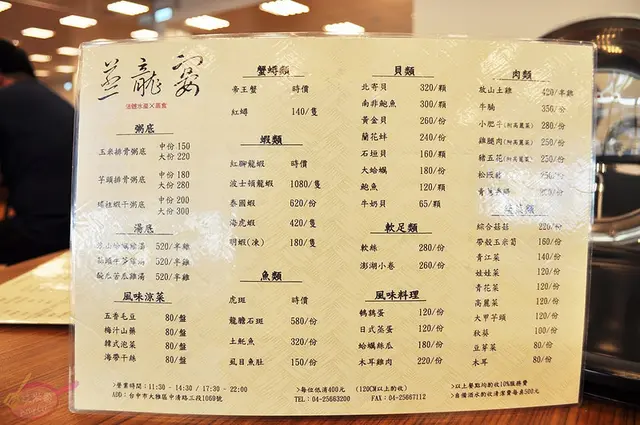 蒸龍宴
活體水產X蒸食
粥底
玉米排骨粥底 中份150
大份220
芋頭排骨粥底 中份180
大份280
蝦干粥底 中份200
大份300
湯底
520/半雞
520/半雞
苦瓜雞湯 520/半雞
風味涼菜
五香毛豆 80/盤
梅汁山藥 80/盤
韓式泡菜 80/盤
海帶干絲 80/盤
蟹蟳類
帝王蟹 時價
紅蟳 140/隻
蝦類
紅腳龍蝦 時價
波士頓龍蝦 1080/隻
泰國蝦 620/份
海虎蝦 420/隻
明蝦(凍) 180/隻
魚類
虎斑 時價
龍膽石斑 580/份
土魠魚 320/份
虱目魚肚 150/份
貝類
北寄貝 320/顆
南非鮑魚 300/顆
黃金貝 260/份
蘭花蚌 240/份
石垣貝 160/顆
大蛤蠣 180/份
鮑魚 120/顆
牛奶貝 65/顆
軟足類
軟絲 280/份
澎湖小卷 260/份
風味料理
鵪鶉蛋 120/份
日式蒸蛋 120/份
蛤蠣絲瓜 180/份
木耳雞肉 220/份
肉類
放山土雞 420/半雞
牛腩 350/份
小肥牛(附高麗菜) 280/份
雞腿肉(附高麗菜) 250/份
豬五花(附高麗菜) 250/份
松阪豬
綜合菇菇 220/份
帶殼玉米筍 160/份
青江菜 140/份
娃娃菜 120/份
青花菜 120/份
高麗菜 120/份
大甲芋頭 120/份
秋葵 100/份
豆芽菜 80/份
木耳 80/份
>營業時間:11:30 - 14:30 / 17:30 - 22:00
ADD:台中市大雅區中清路三段1069號
>每位低消400元 (120CM以上酌收)
TEL:04-25663200 FAX:04-25667112
>以上餐點均酌收10%服務費
>自備酒水酌收清潔費每桌500元